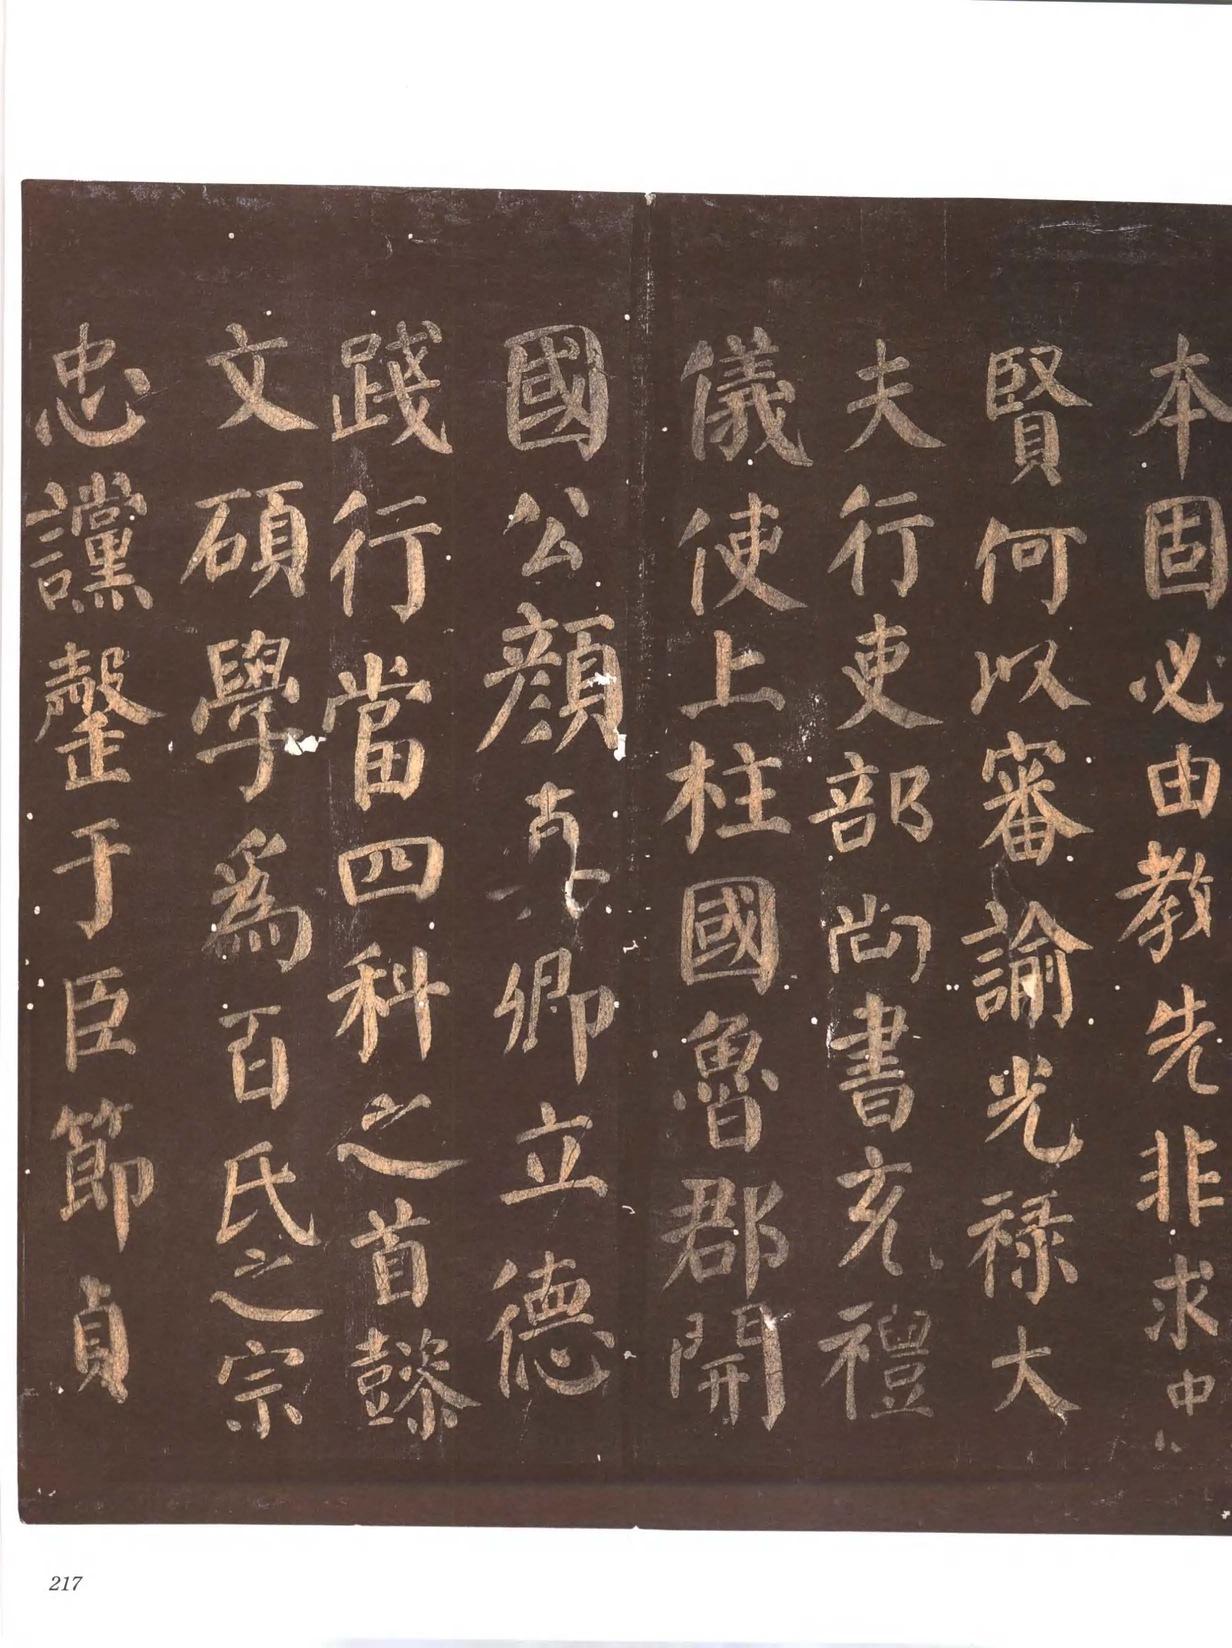 本固必由教先非求中
賢何以審諭光祿大
夫行吏部尚書充禮
儀使上柱國魯郡開
國公顏真卿立德
踐行當四科之首懿
文碩學為百氏之宗
忠讜罄于臣節貞
217